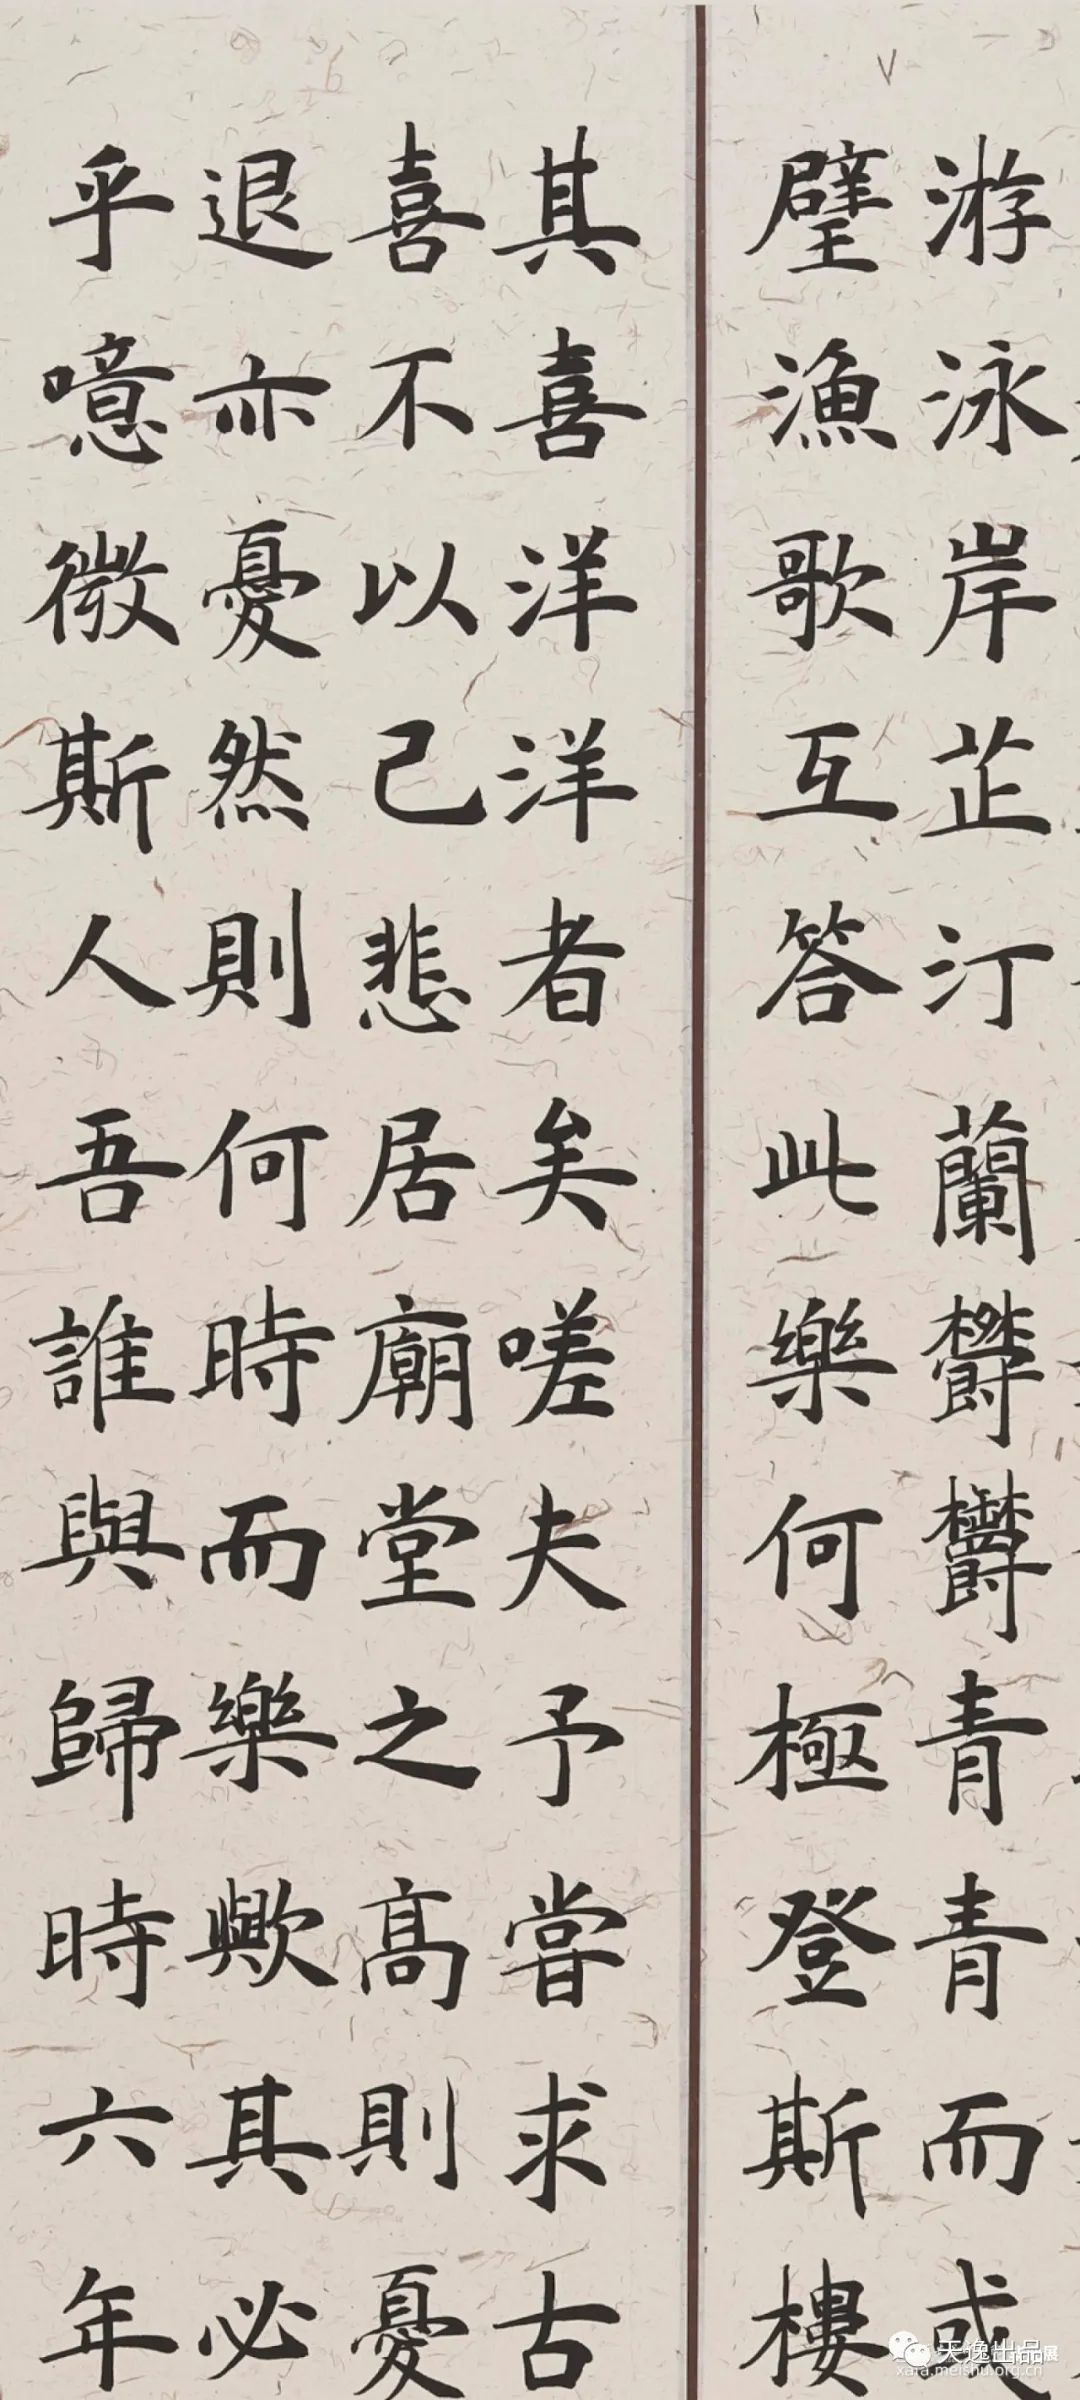 游泳岸芷汀蘭欝欝青青而或
璧漁歌互答此樂何極登斯樓
其喜洋洋者矣嗟夫予嘗求古
喜不以己悲居廟堂之高則憂
退亦憂然則何時而樂歟其必
乎噫微斯人吾誰與歸時六年
天逸出品
展
xafa.meishu.org.cn